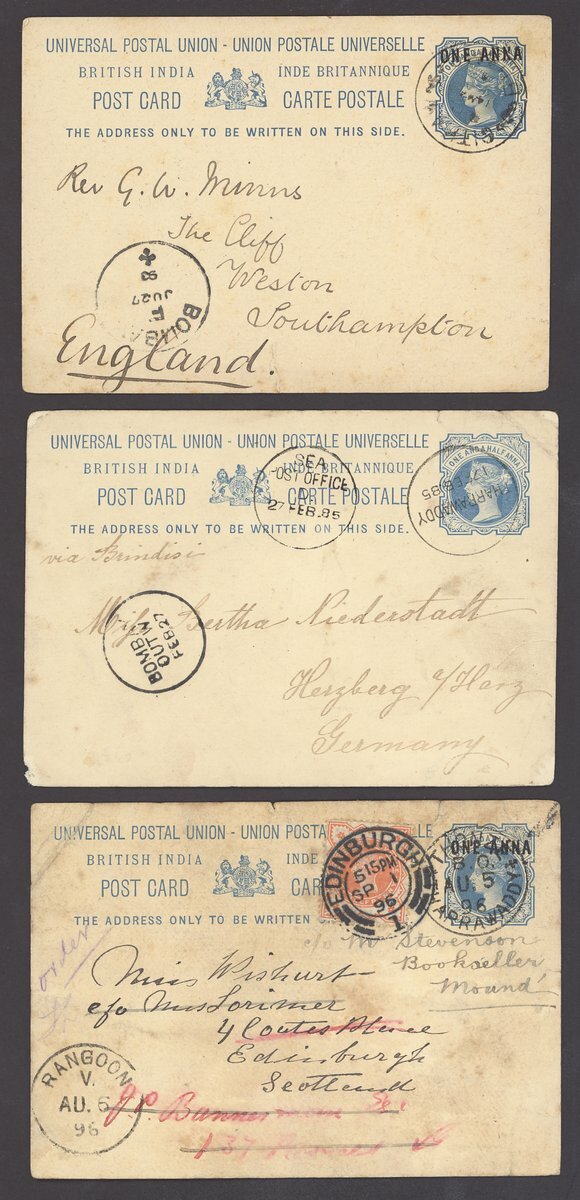 UNIVERSAL POSTAL UNION - UNION POSTALE UNIVERSELLE
ONE ANNA
BRITISH INDIA INDE BRITANNIQUE
POST CARD CARTE POSTALE
THE ADDRESS ONLY TO BE WRITTEN ON THIS SIDE.
Rev G. W. Minns
The Cliff
Weston
Southampton
England.
BOMBA
JU 27
93
UNIVERSAL POSTAL UNION - UNION POSTALE UNIVERSELLE
ONE AND A HALF ANNA
BRITISH INDIA INDE BRITANNIQUE
POST CARD CARTE POSTALE
THE ADDRESS ONLY TO BE WRITTEN ON THIS SIDE.
SEA
POST OFFICE
27 FEB.85
THARRAWADDY
17 FEB.85
via Brindisi
BOMBA
OUTW
FEB 27
Miss Bertha Niederstadt
Herzberg a/Harz
Germany
UNIVERSAL POSTAL UNION - UNION POSTA LE
ONE ANNA
BRITISH INDIA INDE
POST CARD CA
THE ADDRESS ONLY TO BE WRITTEN
EDINBURGH
515PM
SP
96
1
AU. 5
96
c/o Mr Stevenson
Bookseller
Mound
Miss Wishart
c/o Mrs Lorimer
4 Coates Place
Edinburgh
Scotland
RANGOON
V.
AU. 6
96
137